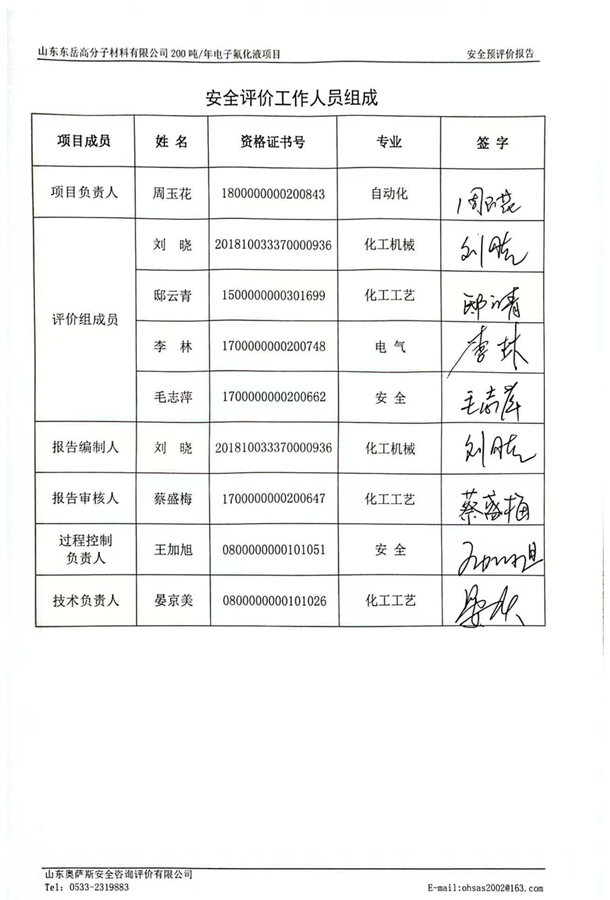 山东东岳高分子材料有限公司200吨/年电子氟化液项目 安全预评价报告
安全评价工作人员组成
项目成员 姓名 资格证书号 专业 签字
项目负责人 周玉花 1800000000200843 自动化 周玉花
刘晓 201810033370000936 化工机械 刘晓
邸云青 1500000000301699 化工工艺 邸云青
评价组成员
李林 1700000000200748 电气 李林
毛志萍 1700000000200662 安全 毛志萍
报告编制人 刘晓 201810033370000936 化工机械 刘晓
报告审核人 蔡盛梅 1700000000200647 化工工艺 蔡盛梅
过程控制
负责人 王加旭 0800000000101051 安全 王加旭
技术负责人 晏京美 0800000000101026 化工工艺
山东奥萨斯安全咨询评价有限公司
Tel: 0533-2319883 E-mail:ohsas2002@163.com